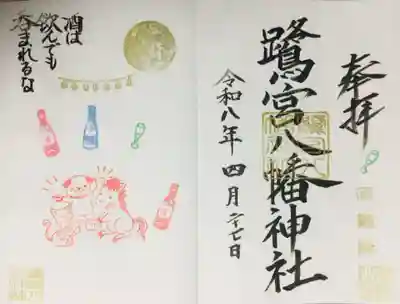 奉拝
鷺宮八幡神社
令和八年四月二十七日
酒は
飲んでも
呑まれるな